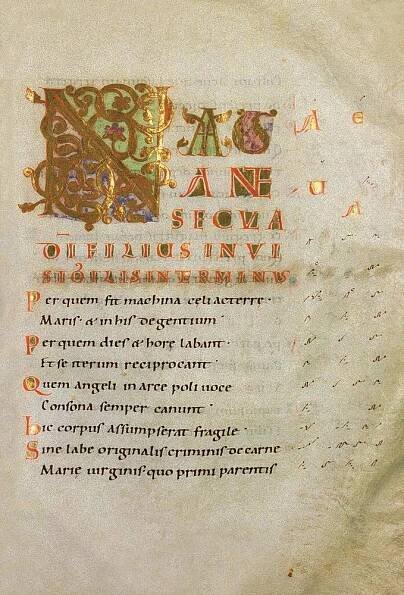 NATUS A E
ANTE U
SECULA A
DI FILIUS INVI
SIBILIS INTERMINUS
Per quem fit machina celi ac terre·
Maris· & in his degentium·
Per quem dies & horę labant·
Et se iterum reciprocant·
Quem angeli in arce poli uoce
Consona semper canunt·
hic corpus assumpserat fragile·
Sine labe originalis criminis de carne
Marię uirginis quo primi parentis